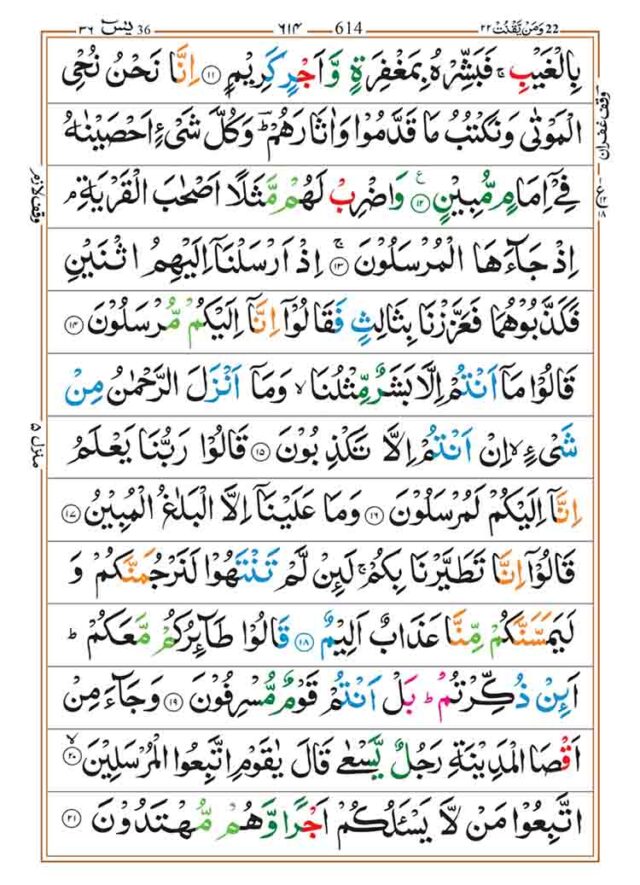 36 يٰسٓ ٣٦ ٦١٤ 614 22 وَمَنْ يَّقْنُتْ ٢٢
بِالْغَيْبِ ۚ فَبَشِّرْهُ بِمَغْفِرَةٍ وَّاَجْرٍ كَرِيْمٍ ۝۱۱ اِنَّا نَحْنُ نُحْيِ
الْمَوْتٰى وَنَكْتُبُ مَا قَدَّمُوْا وَاٰثَارَهُمْ ؕ وَكُلَّ شَيْءٍ اَحْصَيْنٰهُ
فِيْۤ اِمَامٍ مُّبِيْنٍ ۝۱۲ وَاضْرِبْ لَهُمْ مَّثَلًا اَصْحٰبَ الْقَرْيَةِ ۘ
اِذْ جَآءَهَا الْمُرْسَلُوْنَ ۝۱۳ اِذْ اَرْسَلْنَاۤ اِلَيْهِمُ اثْنَيْنِ
فَكَذَّبُوْهُمَا فَعَزَّزْنَا بِثَالِثٍ فَقَالُوْۤا اِنَّاۤ اِلَيْكُمْ مُّرْسَلُوْنَ ۝۱۴
قَالُوْا مَاۤ اَنْتُمْ اِلَّا بَشَرٌ مِّثْلُنَا ۙ وَمَاۤ اَنْزَلَ الرَّحْمٰنُ مِنْ
شَيْءٍ ۙ اِنْ اَنْتُمْ اِلَّا تَكْذِبُوْنَ ۝۱۵ قَالُوْا رَبُّنَا يَعْلَمُ
اِنَّاۤ اِلَيْكُمْ لَمُرْسَلُوْنَ ۝۱۶ وَمَا عَلَيْنَاۤ اِلَّا الْبَلٰغُ الْمُبِيْنُ ۝۱۷
قَالُوْۤا اِنَّا تَطَيَّرْنَا بِكُمْ ۚ لَئِنْ لَّمْ تَنْتَهُوْا لَنَرْجُمَنَّكُمْ وَ
لَيَمَسَّنَّكُمْ مِّنَّا عَذَابٌ اَلِيْمٌ ۝۱۸ قَالُوْا طَآئِرُكُمْ مَّعَكُمْ ؕ
اَئِنْ ذُكِّرْتُمْ ؕ بَلْ اَنْتُمْ قَوْمٌ مُّسْرِفُوْنَ ۝۱۹ وَجَآءَ مِنْ
اَقْصَا الْمَدِيْنَةِ رَجُلٌ يَّسْعٰى قَالَ يٰقَوْمِ اتَّبِعُوا الْمُرْسَلِيْنَ ۝۲۰
اتَّبِعُوْا مَنْ لَّا يَسْـَٔلُكُمْ اَجْرًا وَّهُمْ مُّهْتَدُوْنَ ۝۲۱
وقف غفران
وقف لازم
منزل ۵